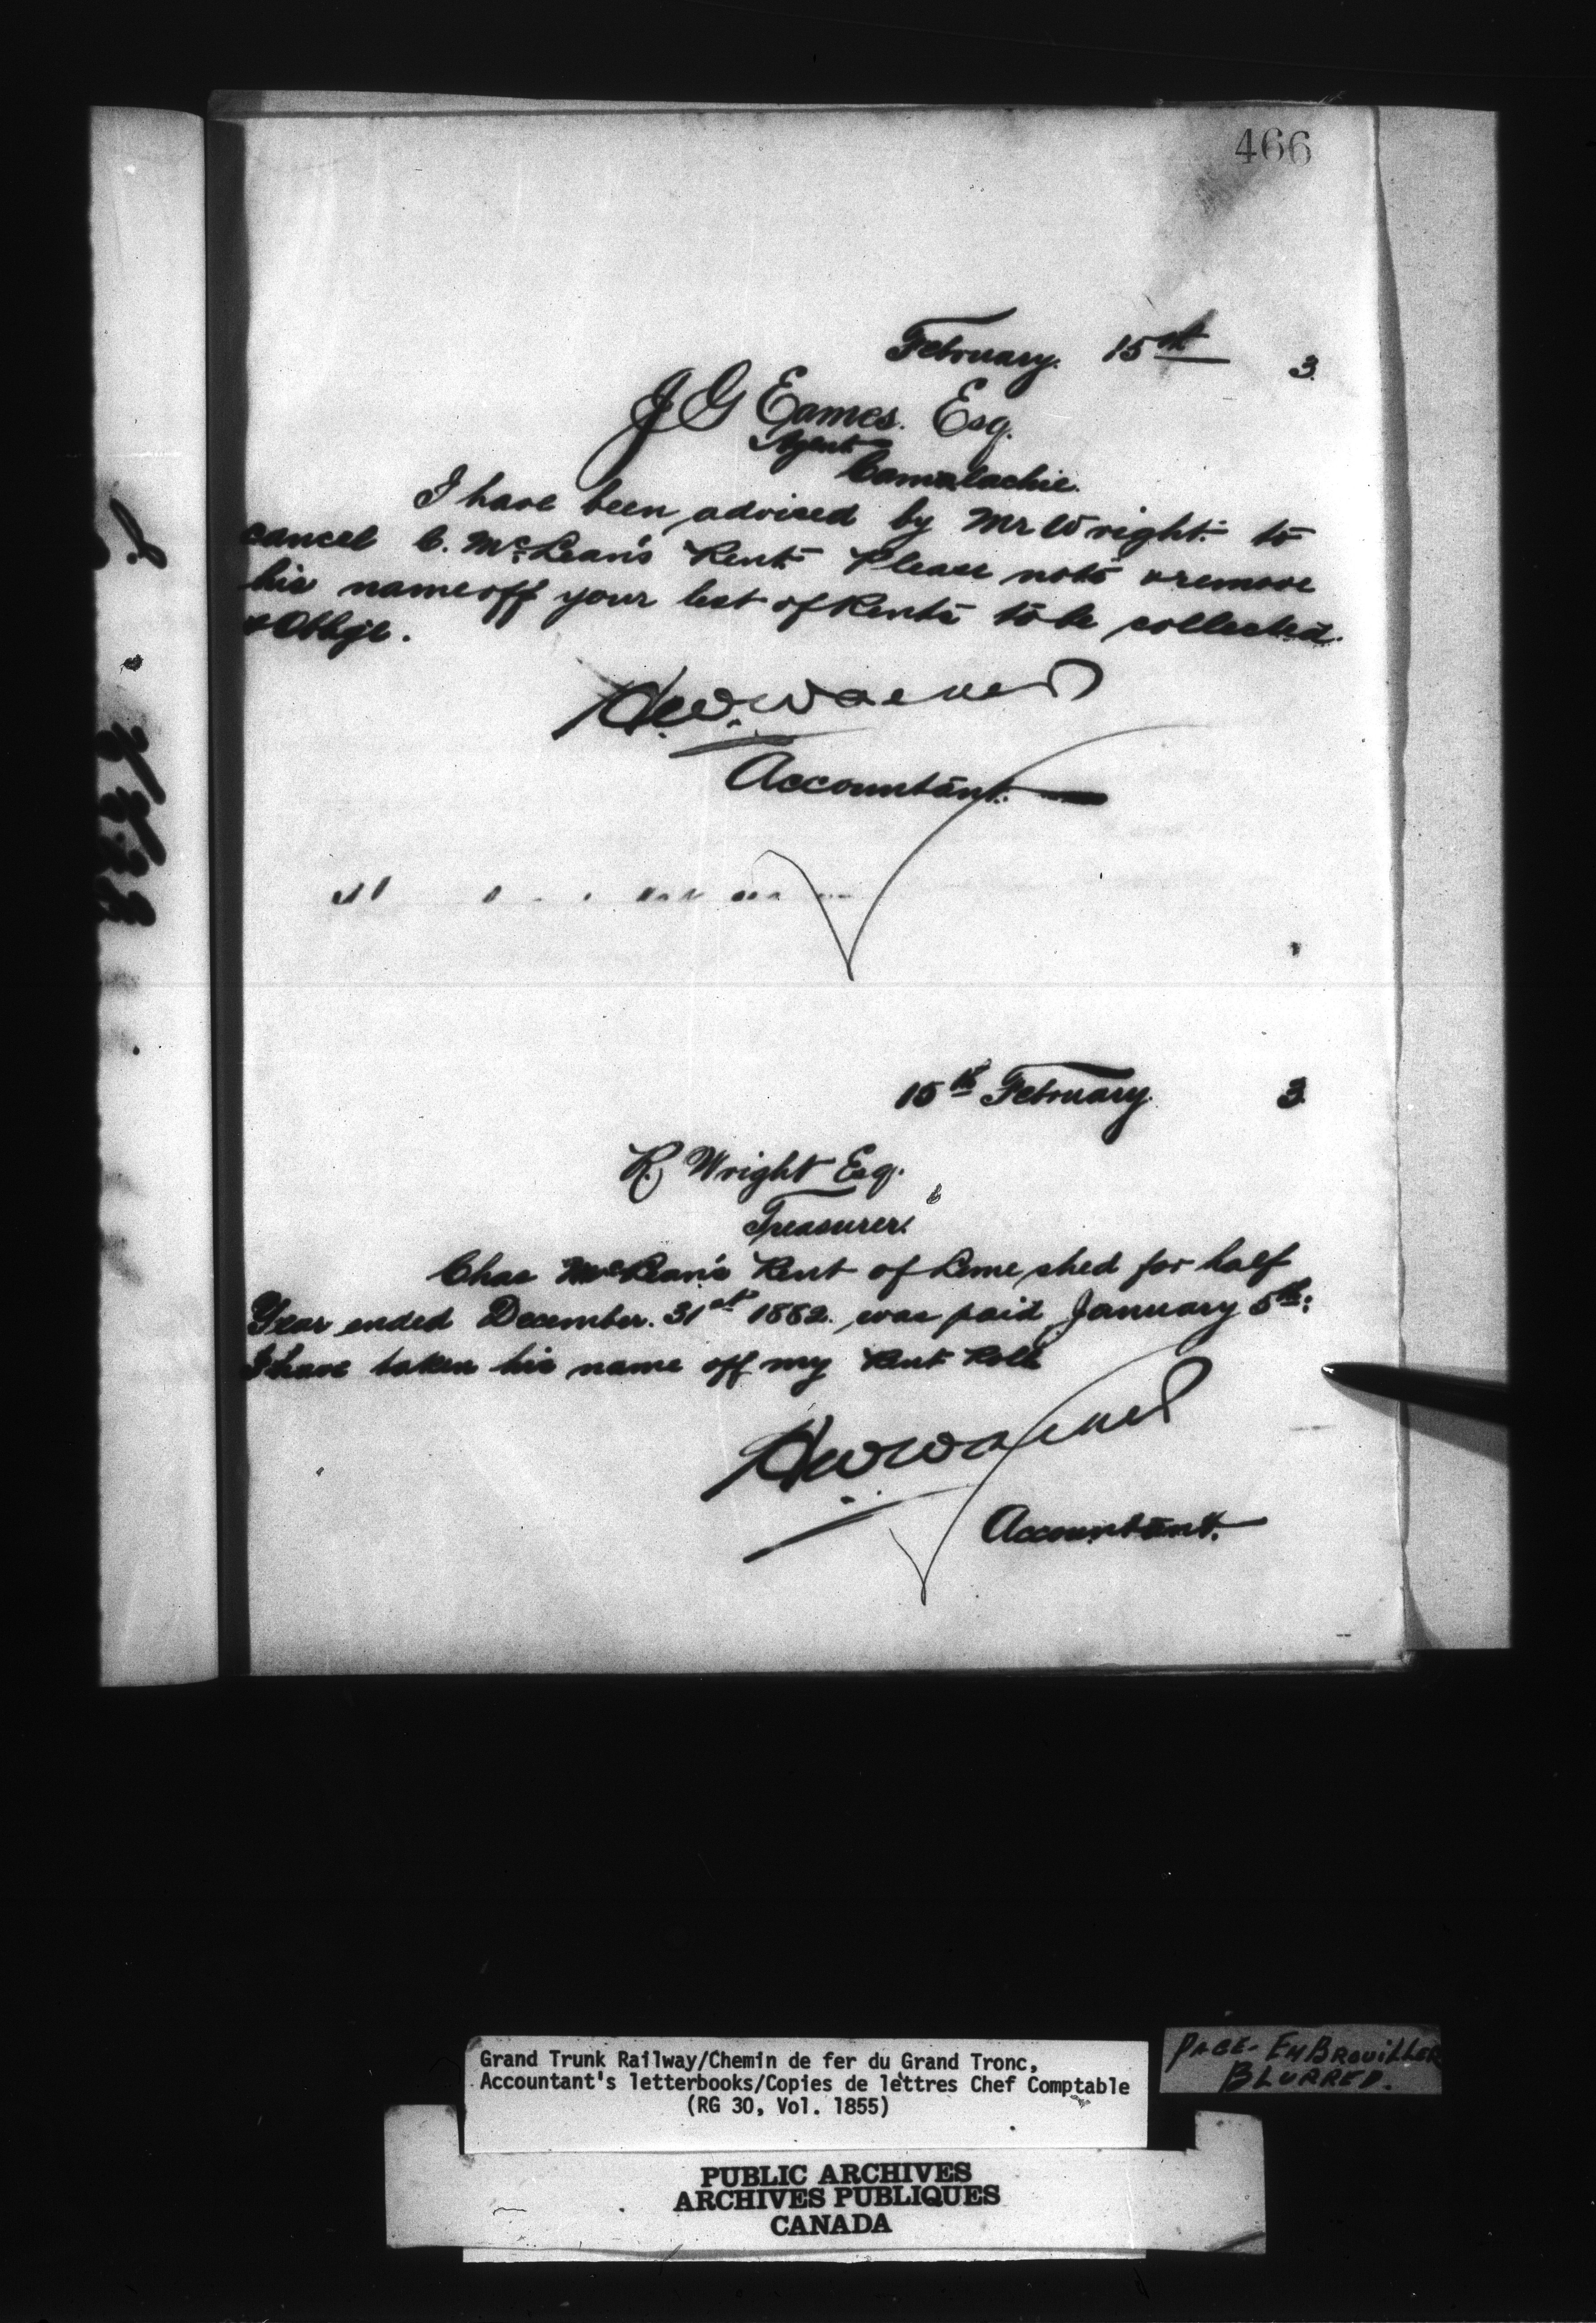 466
February. 15th 3.
J G Eames. Esq.
Agent
Camalachie.
I have been advised by Mr Wright. to
cancel C. McLean's Rent Please note & remove
his name off your list of Rents to be collected.
& Oblige.
Accountant.
15th February. 3
R. Wright Esq.
Treasurer.
Chas McLean's Rent of Lime shed for half
Year ended December. 31st 1882. was paid January 5th:
I have taken his name off my Rent Roll
Accountant.
Grand Trunk Railway/Chemin de fer du Grand Tronc,
Accountant's letterbooks/Copies de lettres Chef Comptable
(RG 30, Vol. 1855)
PAGE-EMBROUILLER
BLURRED.
PUBLIC ARCHIVES
ARCHIVES PUBLIQUES
CANADA